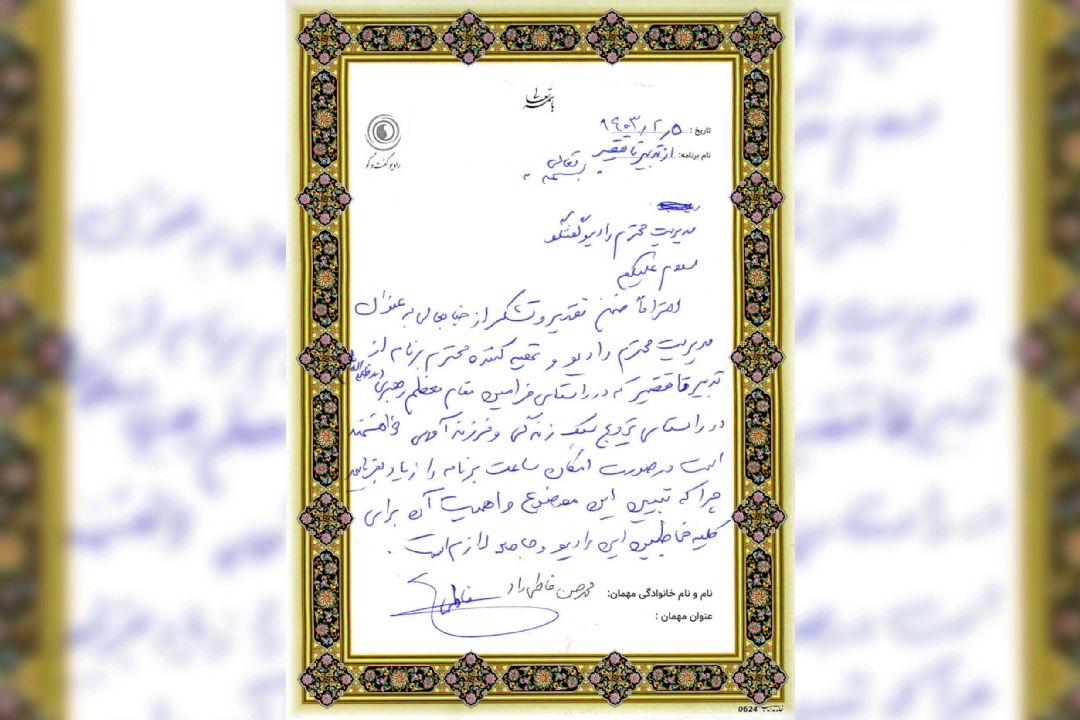 باسمه تعالی
تاریخ : ۱۴۰۳/۲/۵
نام برنامه: از تدبیر تا تقصیر
رادیو گفت و گو
بسمه تعالی
مدیریت محترم رادیو گفتگو
سلام علیکم
احتراماً ضمن تقدیر و تشکر از جنابعالی به عنوان
مدیریت محترم رادیو و تهیه کننده محترم برنامه از
تدبیر تا تقصیر که در راستای فرامین مقام معظم رهبری
در راستای ترویج سبک زندگی و فرزندآوری خواهشمند
است در صورت امکان ساعت برنامه را زیاد بفرمایید
چرا که تبیین این موضوع و اهمیت آن برای
کلیه مخاطبین این رادیو و جامعه لازم است .
نام و نام خانوادگی مهمان: محمدحسن فاطمی راد
عنوان مهمان :
0624